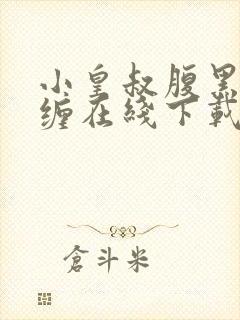 小皇叔腹黑
缠在线下载
倉斗米